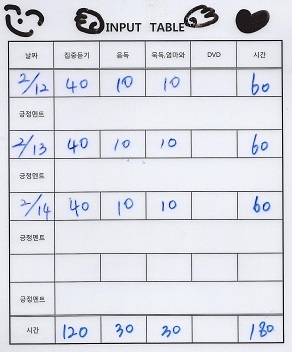 INPUT TABLE
날짜 집중듣기 음독 묵독,엄마와 DVD 시간
2/12 40 10 10 60
긍정멘트
2/13 40 10 10 60
긍정멘트
2/14 40 10 10 60
긍정멘트
긍정멘트
시간 120 30 30 180